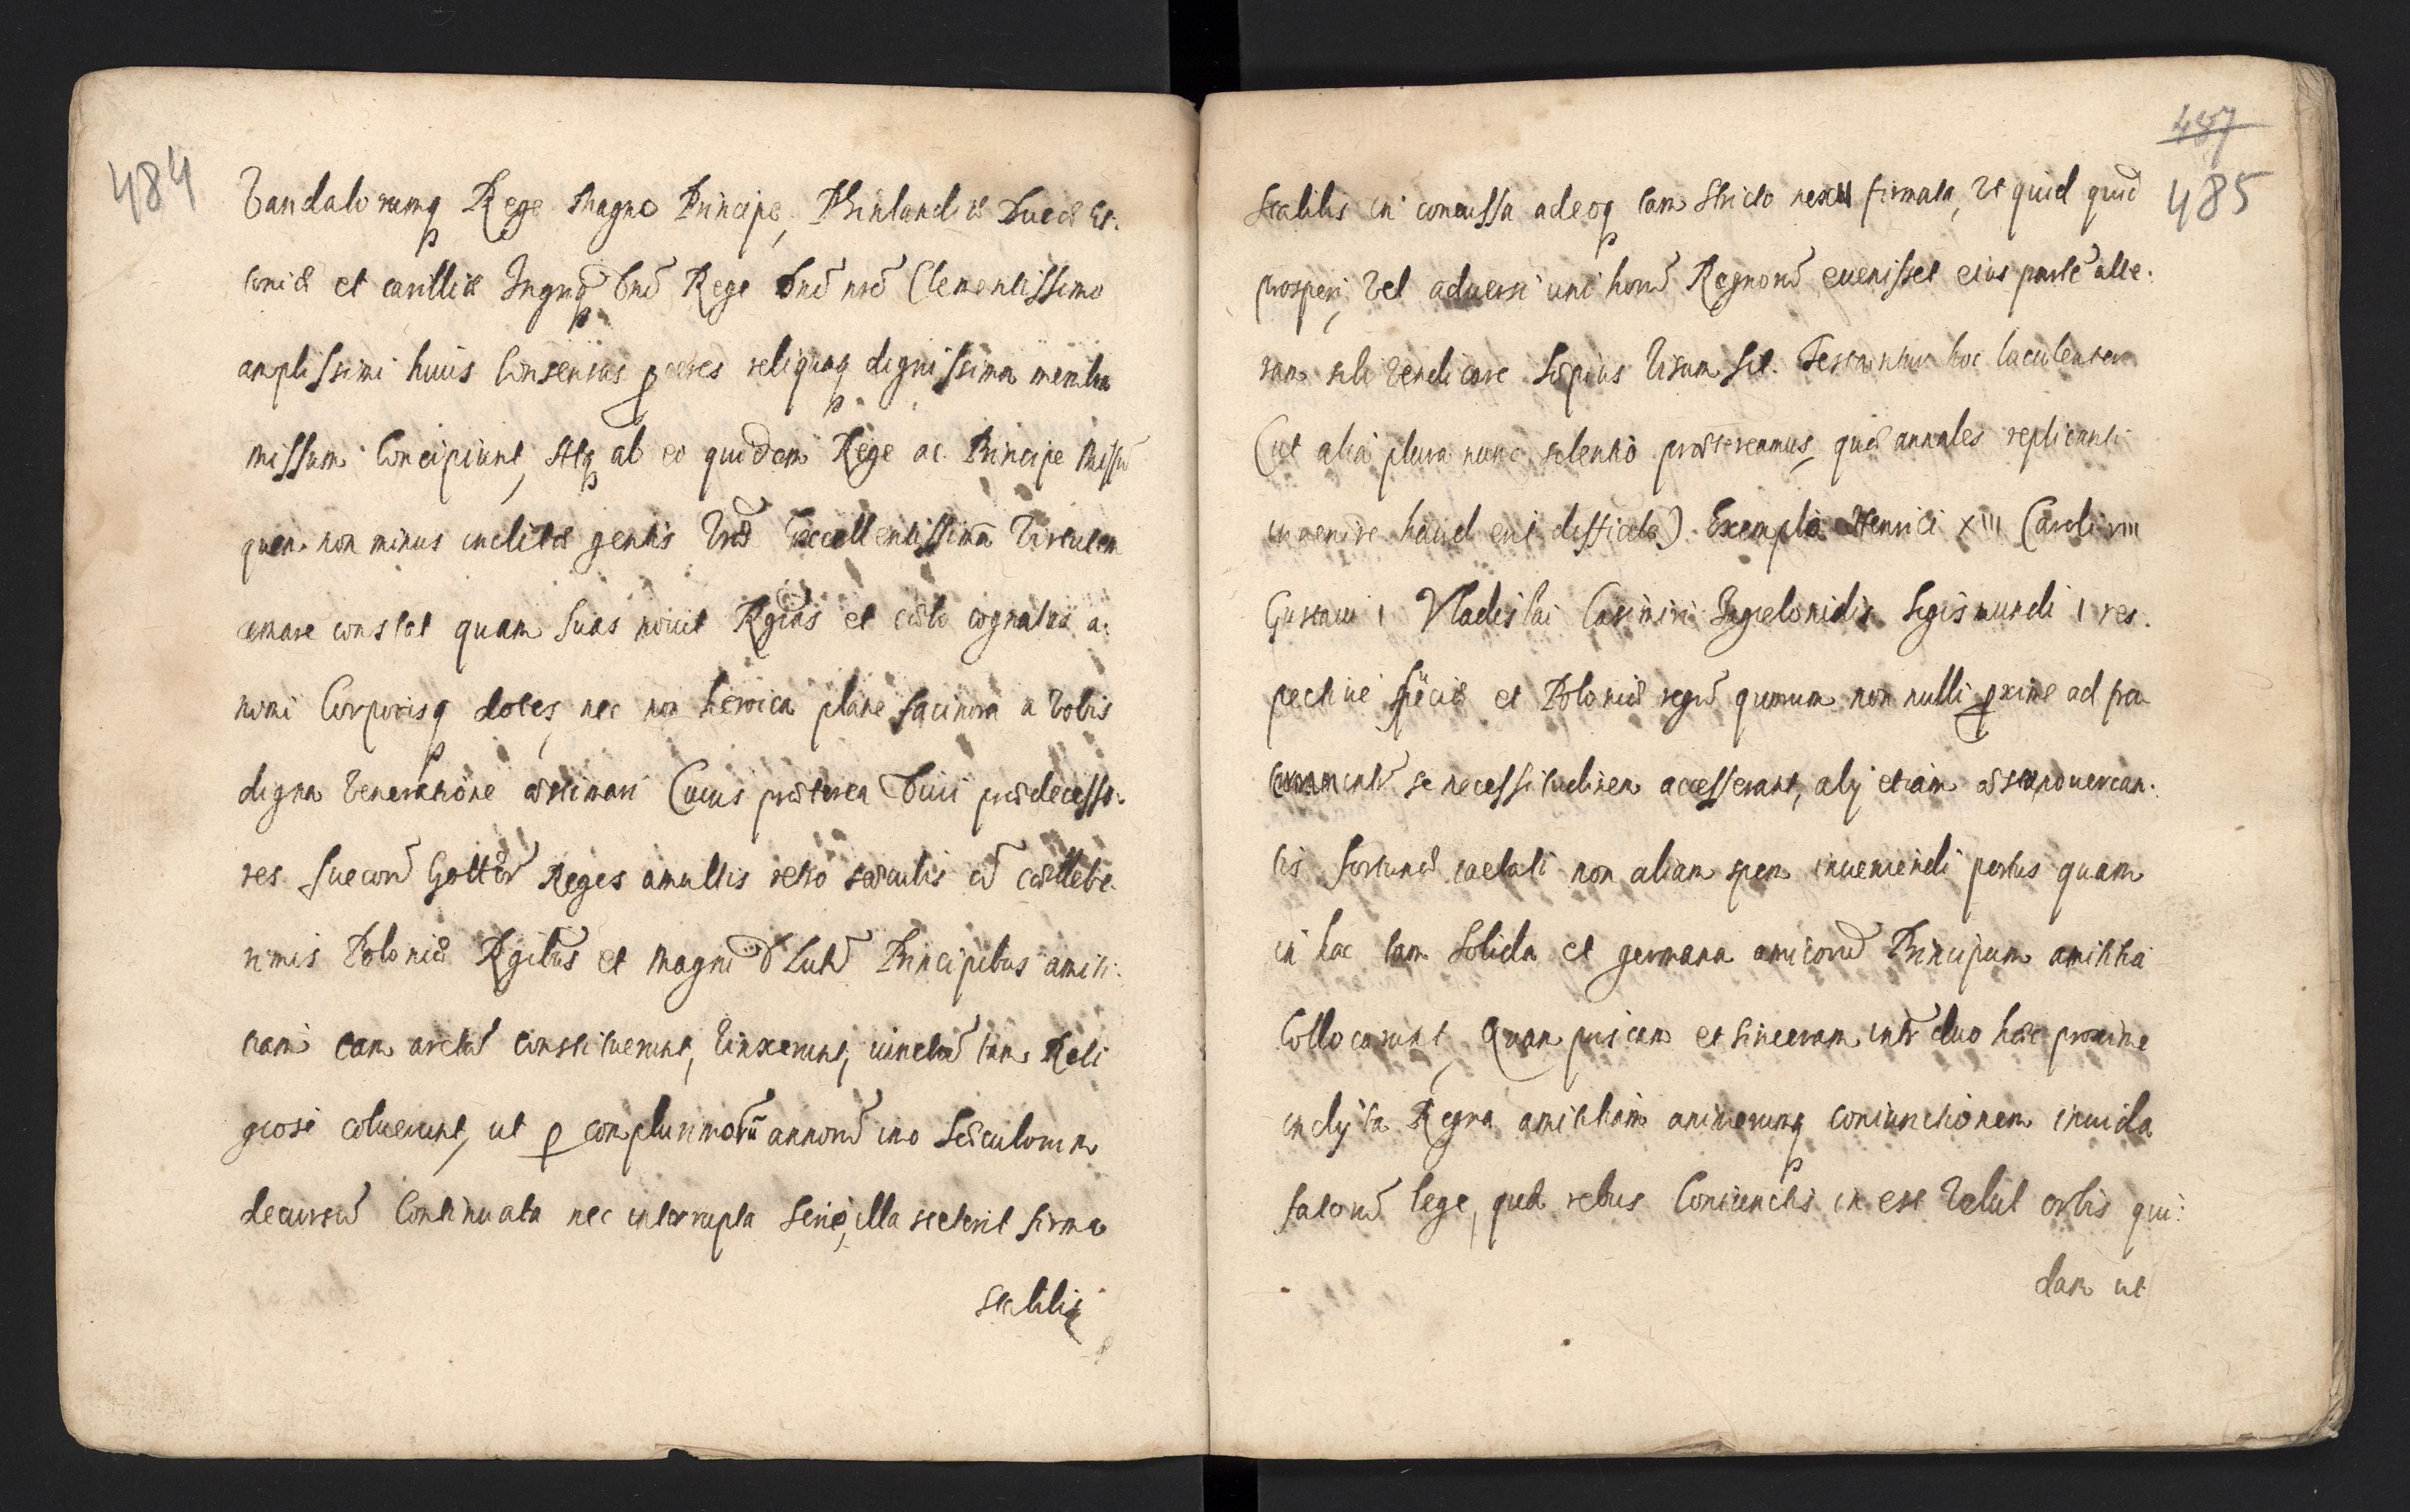 484
Vandalorumq Rege Magno Principe, Phinlandiæ Ducæ Es-
toniæ et carilliæ Ingrq Dno Rege Dno nro Clementissimo
amplissimi huius Consensus proceres reliquaq dignissima membra
missum Concipiunt, Atq ab eo quidem Rege ac Principe missu
quem non minus inclitæ gentis Vræ Excellentissimā Virtutem
amare constat quam suas novit Rgias et cælo cognatas a-
nimi Corporisq dotes, nec non heroica plane facinora a Vobis
digna Veneratione æstimari Cuius præterea Divi prædecesso-
res Suecorū Gottorū Reges a multis retro sæculis cū cælebe-
rimis Poloniæ Rgibus et Magni D Lith Principibus amici-
tiam eam arctā constituerunt, Vinxerunt, iunctā tam Reli
giose coluerunt, ut p complurimorū annorū imo Sæculorum
decursū Continuata nec interrupta serie, illa steterit firma
stabilis
487
485
stabilis in concussa adeoq tam stricto nexu firmata, Vt quid quid
prosperi, Vel adversi uni horū Regnorū evenisset eius partē alte-
ram sibi Vendicare Sæpius Visum sit. Testantur hoc luculenter
(ut alia plura nunc silentio prætereamus, quæ annales replicanti
invenire haud erit difficile) Exempla Henrici XIII Caroli VIII
Gustavi 1 Vladislai Casimiri Jagielonidis Sigismundi 1 res-
pective Sveciæ et Poloniæ regū quorum non nulli proxime ad
inter se necessitudinem accesserant, alij etiam æstu novercan-
tis fortunæ iactati non aliam spem inveniendi portus quam
in hac tam solida et germana amicorū Principum amicitia
Collocarunt, Quam priscam et sinceram inter duo hæc proxime
inclyta Regna amicitiam animorumq coniunctionem invida
fatorū lege, quæ rebus Coniunctis in est Velut orbis qui-
dam ut